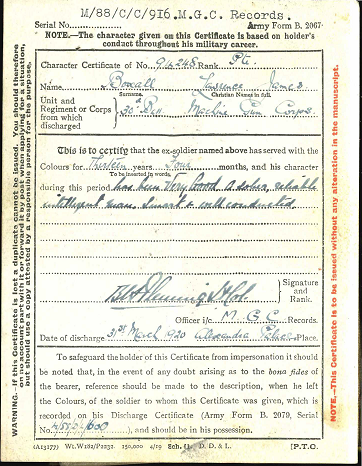 M/88/C/C/916. M.G.C. Records.
Serial No. Army Form B. 2067
NOTE.—The character given on this Certificate is based on holder's
conduct throughout his military career.
Character Certificate of No. 94248 Rank Pte.
Name James
Surname. Christian Names in full.
Unit and
Regiment or Corps
from which
discharged
30th Bn Machine Gun Corps.
This is to certify that the ex-soldier named above has served with the
Colours for Thirteen years Four months, and his character
To be inserted in words.
during this period has been Very Good. A sober, reliable
intelligent man. Smart & well conducted.
Signature
and
Rank.
Officer i/c M. G. C. Records.
Date of discharge 21st March 1920 Alexandra Palace Place.
To safeguard the holder of this Certificate from impersonation it should
be noted that, in the event of any doubt arising as to the bona fides of
the bearer, reference should be made to the description, when he left
the Colours, of the soldier to whom this Certificate was given, which is
recorded on his Discharge Certificate (Army Form B. 2079, Serial
No. ), and should be in his possession.
(A13177) Wt.W1282/P2232. 150,000 4/19 Sch. D. D. & L. [P.T.O.
WARNING.—If this Certificate is lost a duplicate cannot be issued. You should therefore
on no account part with it or forward it by post when applying for a situation,
but should use a copy attested by a responsible person for the purpose.
NOTE.—This Certificate is to be issued without any alteration in the manuscript.